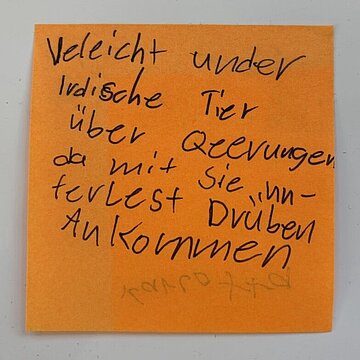 Veleicht under
Irdische Tier
über Qeerungen
da mit Sie ün-
terlest Drüben
Ankommen